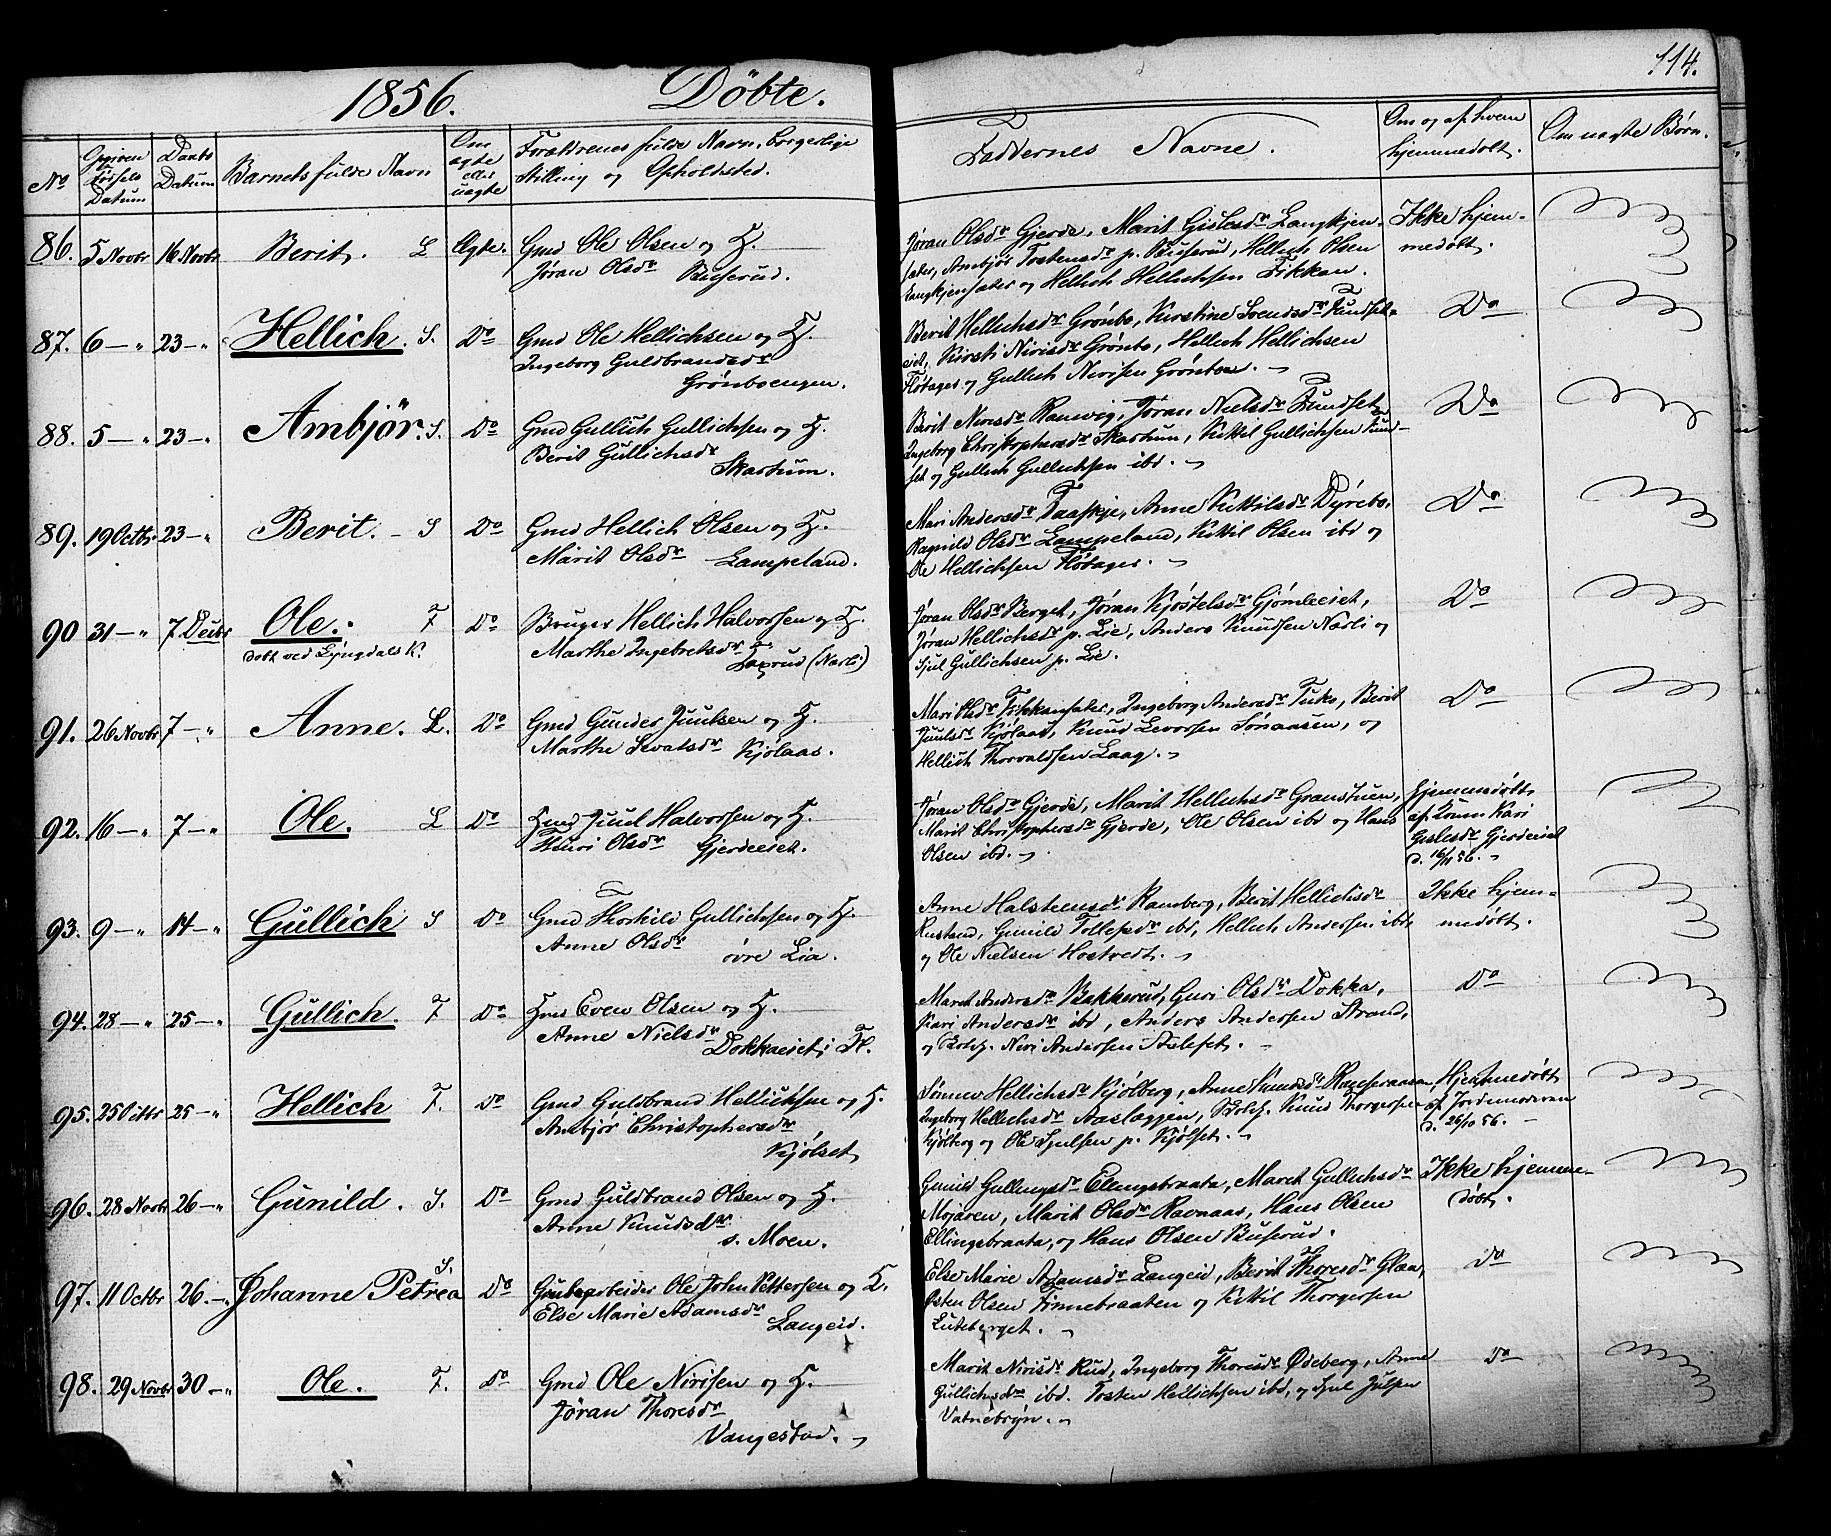 114.
1856. Döbte.
No
Opgiven Fødsels Datum
Daabs Datum
Barnets fulde Navn
Om ægte eller uægte
Forældrenes fulde Navn, borgerlige Stilling og Opholdsted.
Faddernes Navne.
Om og af hvem hjemmedøbt.
Om uægte Børn.
86. 5 Novbr 16 Novbr Berit. L Ægte. Gmd Ole Olsen og H.
Jøran Olsdr Buserud.
Jøran Olsdr Gjerde, Marit Gislesdr Langkjen-
sæter, Ambjør Tostensdr p. Buserud, Hellich Olsen
Langkjensæter og Hellich Hellichsen Fikkan.
Ikke hjem-
medøbt.
87. 6 — " 23 — " Hellich S. Do Gmd Ole Hellichsen og H.
Ingeborg Guldbrandsdr
Grønboengen.
Berit Hellichsdr Grønbo, Kirstine Svendsdr Fundset-
eiet, Kirsti Nirisdr Grønbo, Hellich Hellichsen
Fløtager og Gullich Nirisen Grønboe.
Do
88. 5 — " 23 — " Ambjör. S. Do Gmd Gullich Gullichsen og H.
Berit Gullichsdr
Skartum.
Berit Nirisdr Ramvig, Jøran Nielsdr Fundset
Ingeborg Christophersdr Skartum, Kittil Gullichsen Fund-
set og Gullich Gullichsen ibd.
Do
89. 19 Octbr 23 — " Berit. S Do Gmd Hellich Olsen og H.
Marit Olsdr Lampeland.
Mari Andersdr Taaskje, Anne Kittilsdr Dyrebo,
Ragnild Olsdr Lampeland, Kittil Olsen ibd og
Ole Hellichsen Fløtager.
Do
90 31 — " 7 Decbr Ole. F Do Bruger Hellich Halvorsen og H.
døbt ved Lyngdals K.
Marthe Ingebretsdr (Narli)
Jøran Olsdr Berget, Jøran Kjøstelsdr Gjømleeiet,
Jøran Hellichsdr p. Lie, Anders Knudsen Narli og
Sjul Gullichsen p. Lie.
Do
91. 26 Novbr 7 — " Anne. L. Do Gmd Gunder Juulsen og H.
Marthe Sevatsdr Kjølaas.
Mari Olsdr Fikkansæter, Ingeborg Andersdr Tuko, Berit
Juulsdr Kjølaas, Knud Levorsen Sønaasen, og
Hellich Thorvaldsen Laag.
Do
92. 16 — " 7 — " Ole. L Do Hmd Juul Halvorsen og H.
Thuri Olsdr Gjerdeeiet.
Jøran Olsdr Gjerde, Marit Hellichsdr Granstuen,
Marit Christophersdr Gjerde, Ole Olsen ibd og Hans
Olsen ibd.
Hjemmedøbt
af Konen Kari
Gislesdr Gjerdeeiet
d. 16/11 56.
93. 9 — " 14 — " Gullich S Do Gmd Thorkild Gullichsen og H.
Anne Olsdr øvre Lia.
Anne Halstensdr Ramberg, Berit Hellichsdr
Rustand, Gunild Tollefsdr ibd, Hellich Andersen ibd,
og Ole Nielsen Hostvedt.
Ikke hjem-
medøbt.
94. 28 — " 25 — " Gullich. F Do Hmd Even Olsen og H.
Anne Nielsdr
Dokkaeiet i Fl.
Marit Andersdr Bakkerud, Guri Olsdr Dokka,
Kari Andersdr ibd, Anders Andersen Strand,
og Skolh. Niri Andersen Aalset.
Do
95. 25 Octbr 25 — " Hellich F. Do Gmd Guldbrand Hellichsen og H.
Ambjör Christophersdr
Kjølset
Hellichsdr Kjølberg, Anne Knudsdr
Ingeborg Hellichsdr Aaslaggen, Skolh. Knud Thorgersen
Kjølberg og Ole Sjulsen p. Kjølset.
Hjemmedøbt
af Jordemoderen
d. 26/10 56.
96. 28 Novbr 26 — " Gunild. S. Do Gmd Guldbrand Olsen og H.
Anne Knudsdr
s. Moen.
Gunild Gullingsdr Ellingsbraata, Marit Gullichsdr
Mojaren, Marit Olsdr Ravnaas, Hans Olsen
Ellingsbraata, og Hans Olsen Buserud.
Ikke hjemme-
døbt.
97. 11 Octbr 26. — " Johanne Petrea S. Do Grubearbeider Ole John Pettersen og H.
Else Marie Adamsdr
Langeid.
Else Marie Adamsdr Langeid, Berit Thoresdr Glaa,
Østen Olsen Finnebraaten og Kittil Thorgersen
Luteberget.
do
98. 29 Novbr 30 — " Ole. F. do Gmd Ole Nirisen og H.
Jøran Thoresdr
Vangestad.
Marit Nirisdr Rud, Ingeborg Thoresdr Ødeberg, Anne
Gullichsdr ibd. Tosten Hellichsen ibd, og Sjul Julsen
Vatnebryn.
do